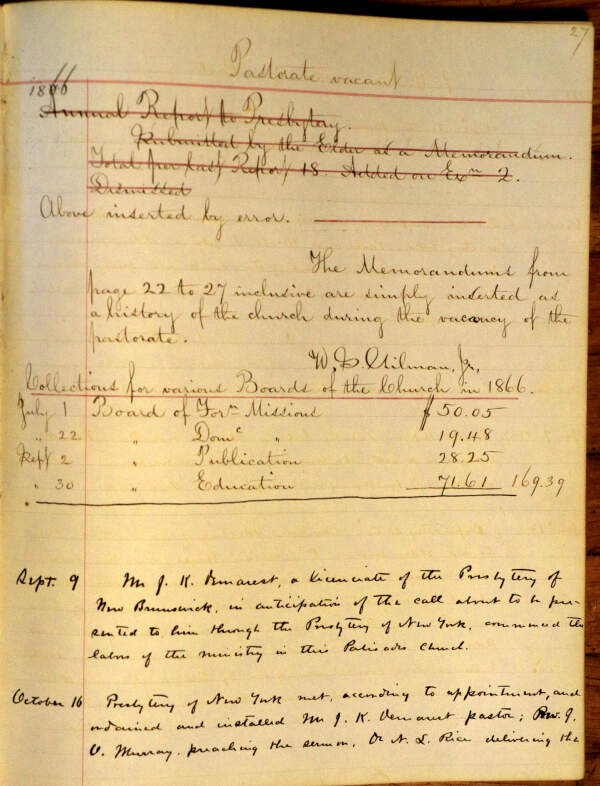 27
Pastorate vacant
1866
Annual Report to Presbytery.
Submitted by the Elder as a Memorandum.
Total per last Report 18. Added on Exn 2.
Dismissed
Above inserted by error.
The Memorandums from
page 22 to 27 inclusive are simply inserted as
a history of the church during the vacancy of the
pastorate.
W. S. Gilman, Jr.,
Collections for various Boards of the Church in 1866.
July 1 Board of Forn Missions $50.05
" 22 " Domc " 19.48
Sept 2 " Publication 28.25
" 30 " Education 71.61 169.39
Sept. 9 Mr J. K. Demarest, a licenciate of the Presbytery of
New Brunswick, in anticipation of the call about to be pre-
sented to him through the Presbytery of New York, commenced the
labors of the ministry in this Palisades Church.
October 16 Presbytery of New York met, according to appointment, and
ordained and installed Mr J. K. Demarest pastor; Rev. J.
O. Murray, preaching the sermon, Dr N. L. Rice delivering the